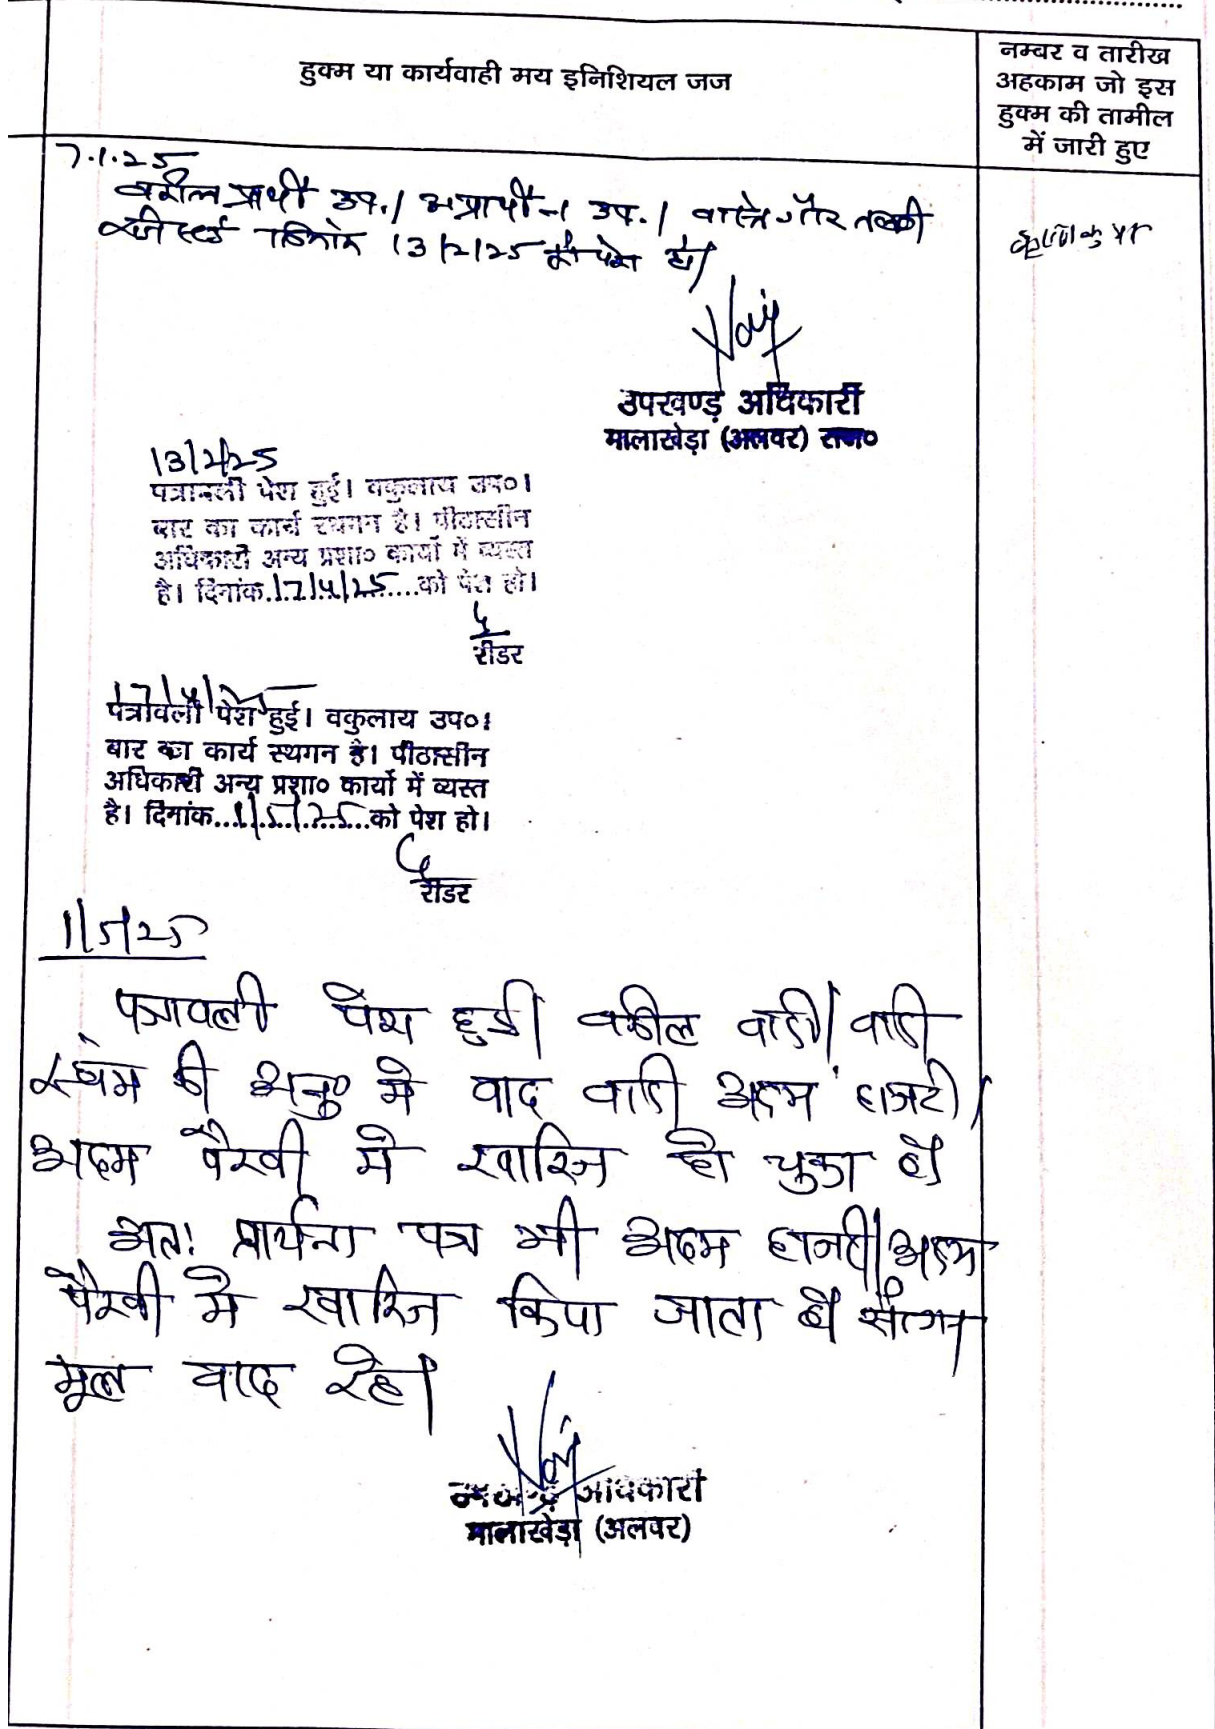 हुक्म या कार्यवाही मय इनिशियल जज
नम्बर व तारीख
अहकाम जो इस
हुक्म की तामील
में जारी हुए
7.1.25
वकील प्रार्थी उप./ अप्रार्थी-1 उप./ वास्ते गैर तलबी
रजिस्टर्ड दिनांक 13/2/25 को पेश हो।
उपखण्ड़ अधिकारी
मालाखेड़ा (अलवर) राज०
13/2/25
पत्रावली पेश हुई। वकुलाय उप०।
बार का कार्य स्थगन है। पीठासीन
अधिकारी अन्य प्रशा० कार्यो में व्यस्त
है। दिनांक.17/4/25....को पेश हो।
रीडर
17/4/25
पत्रावली पेश हुई। वकुलाय उप०।
बार का कार्य स्थगन है। पीठासीन
अधिकारी अन्य प्रशा० कार्यो में व्यस्त
है। दिनांक...1/5/25...को पेश हो।
रीडर
1/5/25
पत्रावली पेश हुई। वकील वादी/वादी
स्वयम की अनु० मे वाद वादी अदम हाजरी/
अदम पैरवी मे खारिज हो चुका है
अतः प्रार्थना पत्र भी अदम हाजरी/अदम
पैरवी मे खारिज किया जाता है संलग्न
मूल वाद रहे।
अधिकारी
मालाखेड़ा (अलवर)